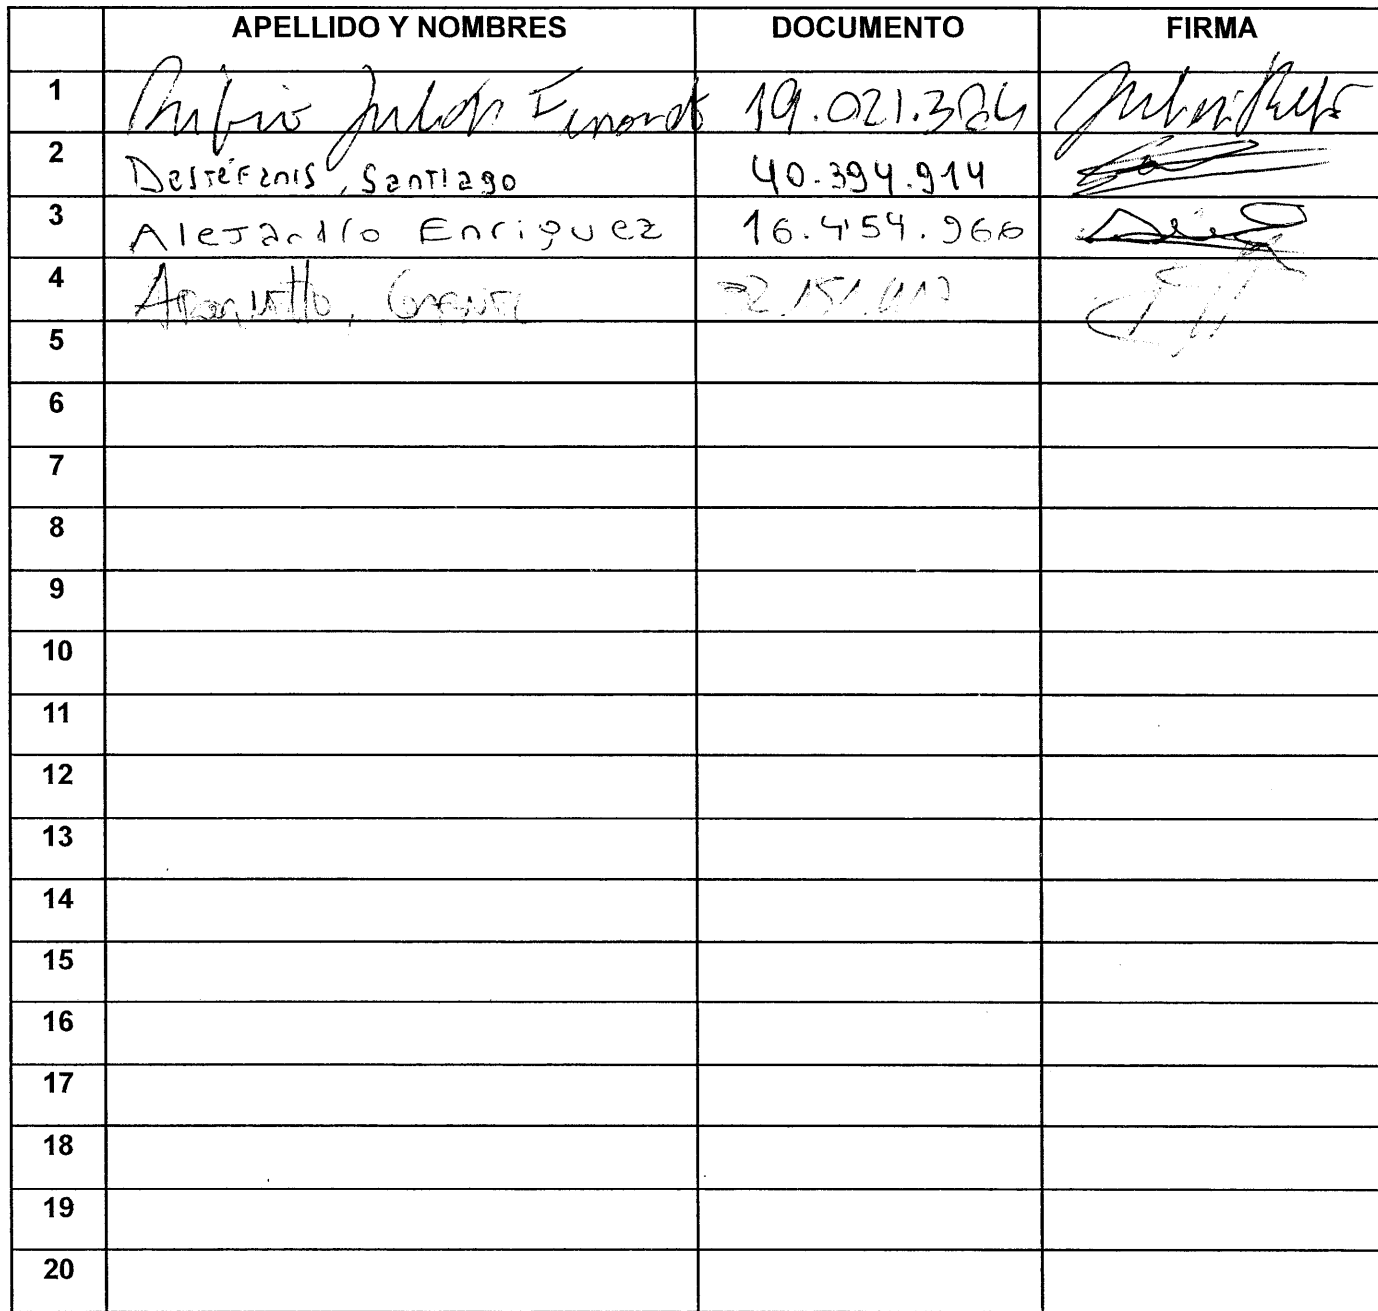 APELLIDO Y NOMBRES DOCUMENTO FIRMA
1 Rubio Julián Fernando
2 Destéfanis, Santiago 40.394.914
3 Alejandro Enriquez 16.454.966
4
5
6
7
8
9
10
11
12
13
14
15
16
17
18
19
20